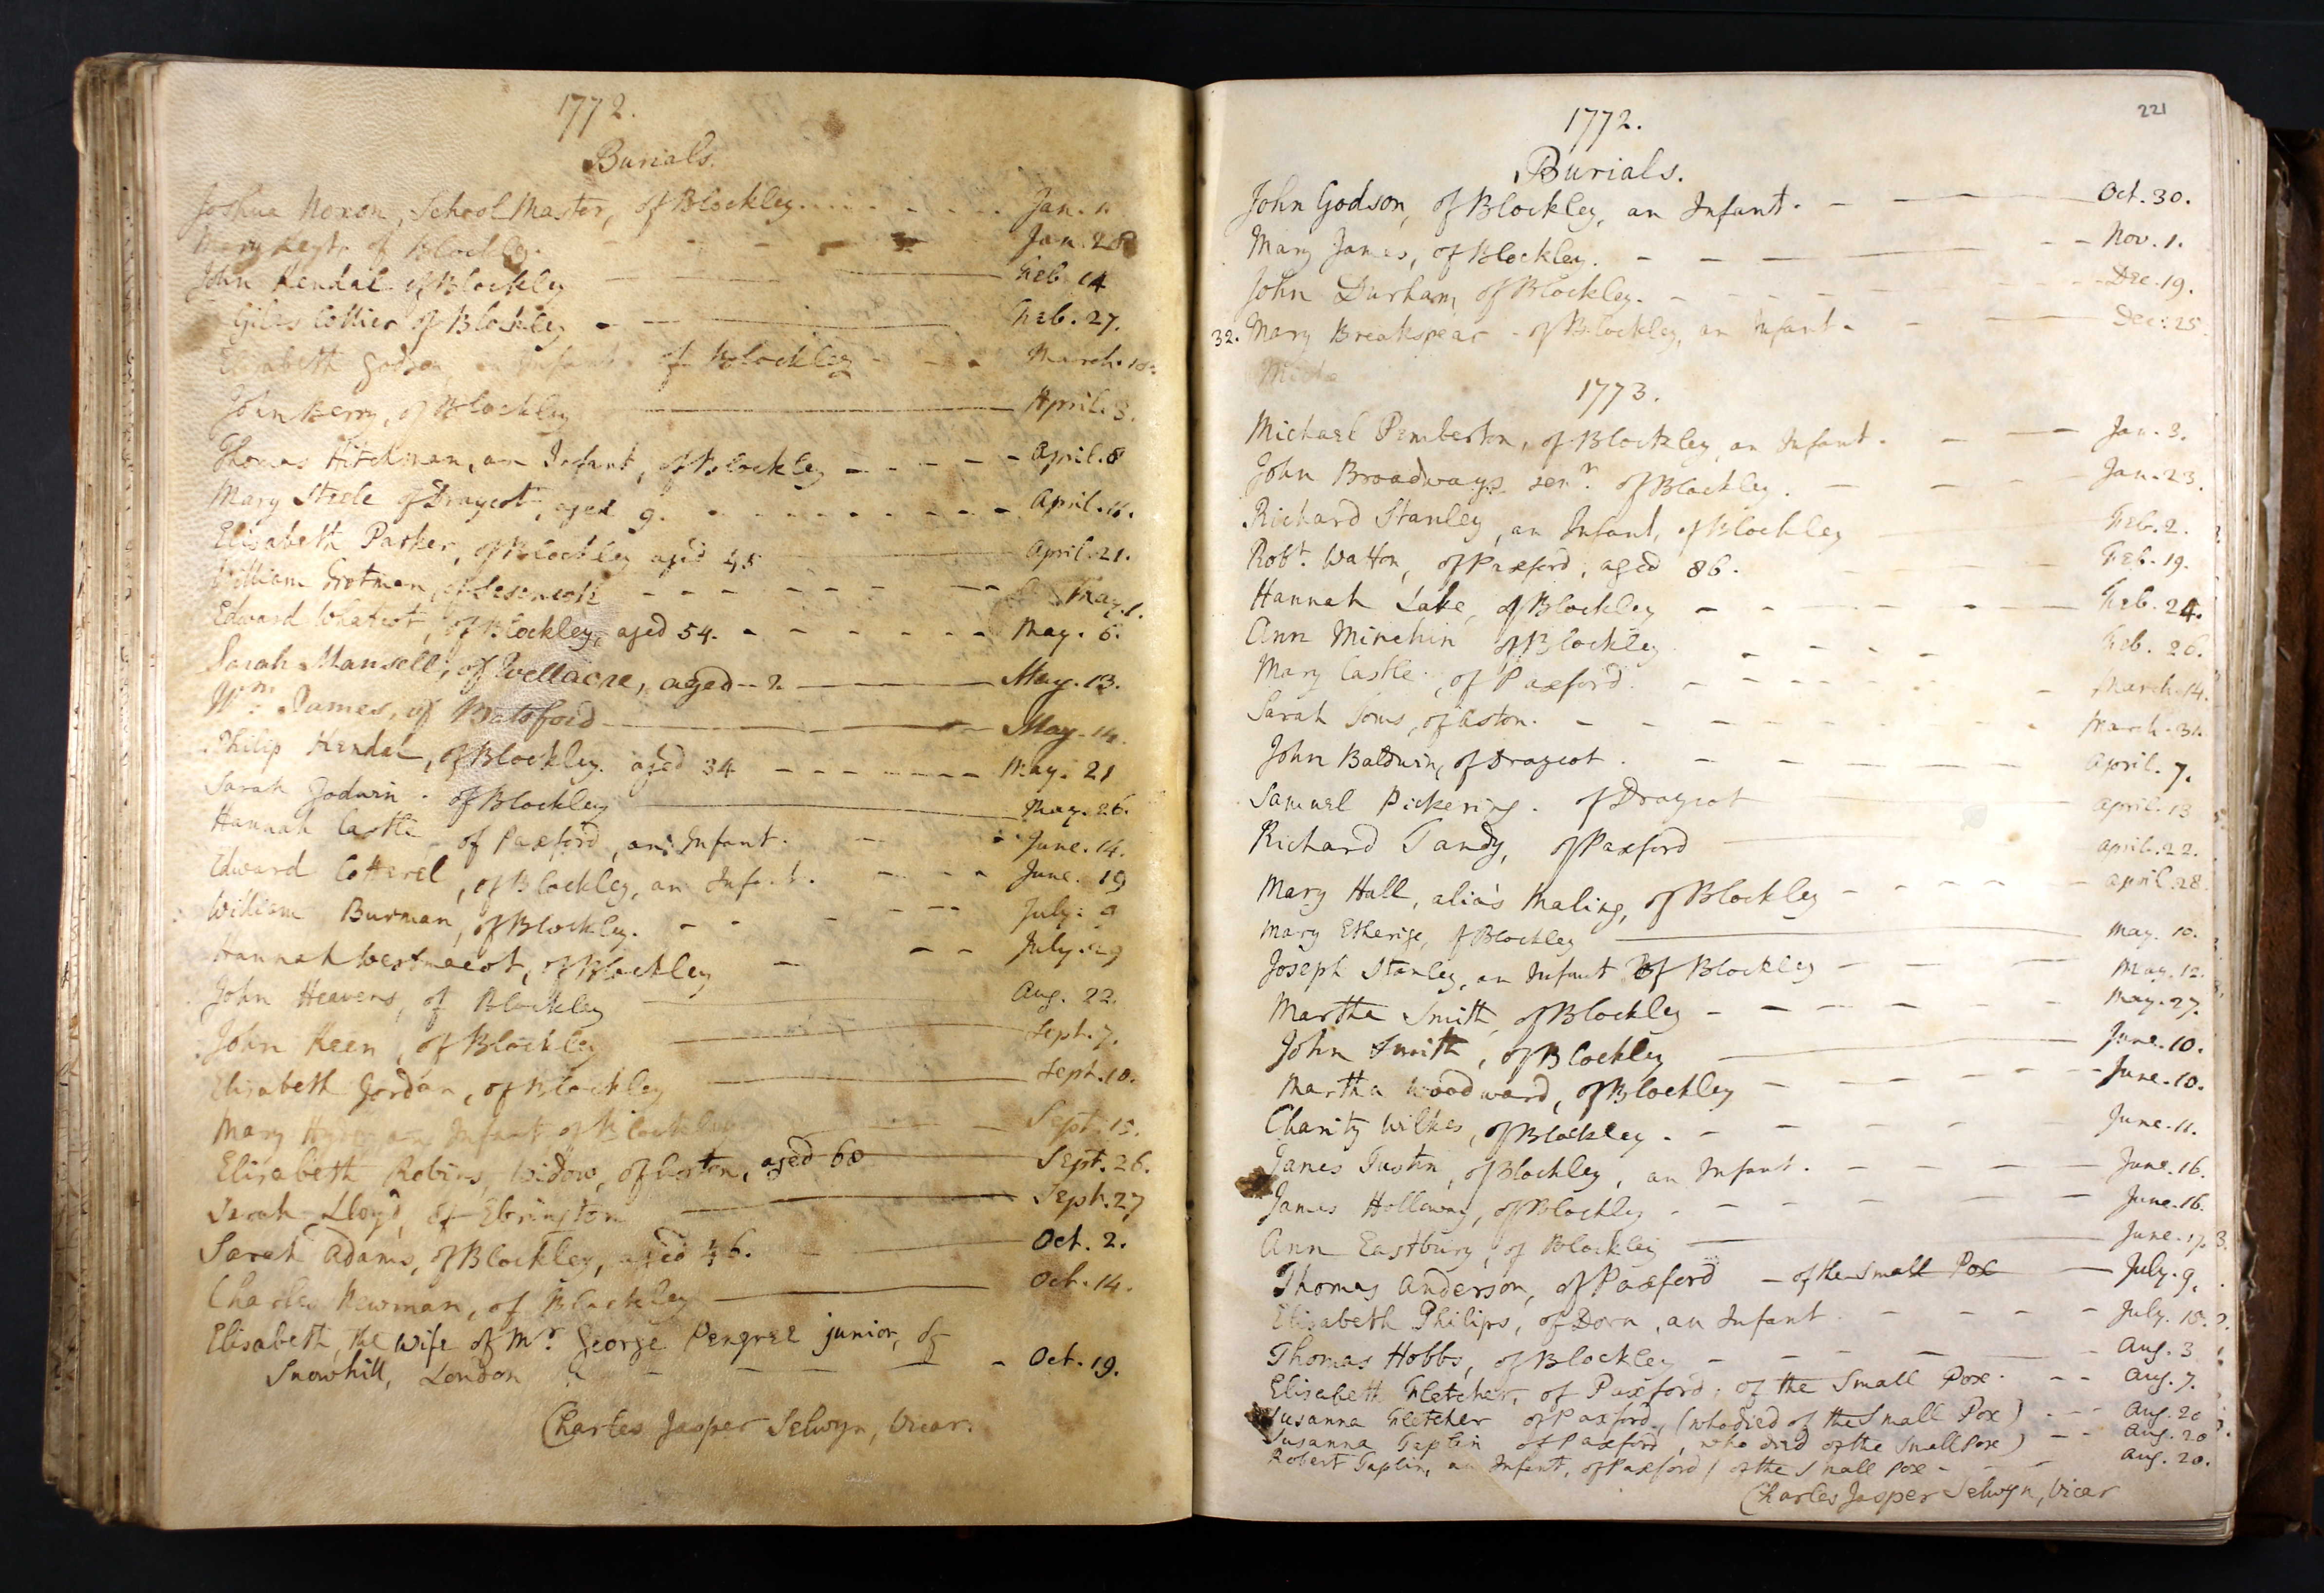 1772.
Burials.
Joshua Noxon, School Master, of Blockley. Jan. 1.
Mary Keyte of Blockley. Jan. 28
John Kendal of Blockley Feb. 14
Giles Collier of Blockley Feb. 27.
Elisabeth Godson an Infant of Blockley March. 10.
John Berry, of Blockley April. 3.
Thomas Hitchman, an Infant, of Blockley April. 8
Mary Steele of Draycot, aged 9. April. 16.
Elisabeth Parker, of Blockley aged 45 April. 21.
William Trotman, of May. 1.
Edward Whatcot, of Blockley, aged 54. May. 6.
Sarah Mansell, of Wellacre, aged - 2 May. 13.
Wm. James, of Batsford May. 14.
Philip Kendal, of Blockley. aged 34 May. 21
Sarah Godwin. of Blockley May. 26.
Hannah Castle of Paxford, an Infant. June. 14.
Edward Cotterel, of Blockley, an Infant. June. 19
William Burman, of Blockley. July. 9
Hannah Westmacot, of Blockley July. 29
John Heavens, of Blockley Aug. 22.
John Keen, of Blockley Sept. 7.
Elisabeth Jordan, of Blockley Sept. 10.
Mary an Infant of Blockley Sept. 15.
Elisabeth Robins, Widow, of Aston, aged 60 Sept. 26.
Sarah Lloyd, of Ebrington Sept. 27
Sarah Adams, of Blockley, aged 46. Oct. 2.
Charles Newman, of Blockley Oct. 14.
Elisabeth, the Wife of Mr. George Pengree junior, of
Snowhill, London Oct. 19.
Charles Jasper Selwyn, Vicar.
221
1772.
Burials.
John Godson, of Blockley, an Infant. Oct. 30.
Mary James, of Blockley. Nov. 1.
John Durham, of Blockley. Dec. 19.
32. Mary Breakspear - of Blockley, an Infant. Dec. 25.
1773.
Michael Pemberton, of Blockley, an Infant. Jan. 3.
John Broadways senr. of Blockley. Jan. 23.
Richard Stanley, an Infant, of Blockley Feb. 2.
Robt. Watton, of Paxford, aged 86. Feb. 19.
Hannah Lake, of Blockley Feb. 24.
Ann Minchin of Blockley Feb. 26.
Mary Castle, of Paxford. March. 14.
Sarah Soms, of Aston. March. 31.
John Baldwin, of Draycot. April. 7.
Samuel Pickering. of Draycot April. 13
Richard Tandy, of Paxford April. 22.
Mary Hall, alias Maling, of Blockley April. 28.
Mary Etherige, of Blockley May. 10.
Joseph Stanley, an Infant Of Blockley May. 12.
Martha Smith, of Blockley May. 27.
John Smith, of Blockley June. 10.
Martha Woodward, of Blockley June. 10.
Charity Wilkes, of Blockley. June. 11.
James Tustin, of Blockley, an Infant. June. 16.
James Holloway, of Blockley June. 16.
Ann Eastbury, of Blockley June. 17.
Thomas Anderson, of Paxford - of the Small Pox July. 9.
Elisabeth Philips, of Dorn, an Infant July. 10.
Thomas Hobbs, of Blockley Aug. 3
Elisabeth Fletcher, of Paxford, of the Small Pox. Aug. 7.
Susanna Fletcher of Paxford, (who died of the Small Pox) Aug. 20
Susanna Taplin of Paxford, who died of the Small Pox) Aug. 20
Robert Taplin, an Infant, of Paxford / of the Small Pox Aug. 20.
Charles Jasper Selwyn, Vicar